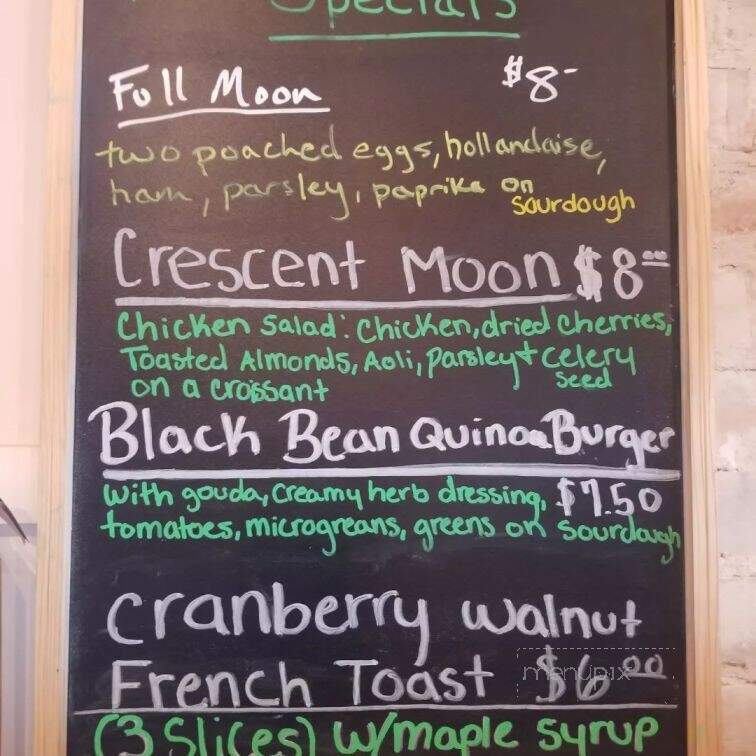 Specials
Full Moon $8-
two poached eggs, hollandaise,
ham, parsley, paprika on
sourdough
Crescent Moon $8.00
Chicken Salad: Chicken, dried cherries,
Toasted Almonds, Aoli, parsley + celery
seed
on a croissant
Black Bean Quinoa Burger
with gouda, creamy herb dressing, $7.50
tomatoes, microgreans, greens on sourdough
Cranberry walnut
French Toast $6.00
menupix
(3 slices) w/maple syrup